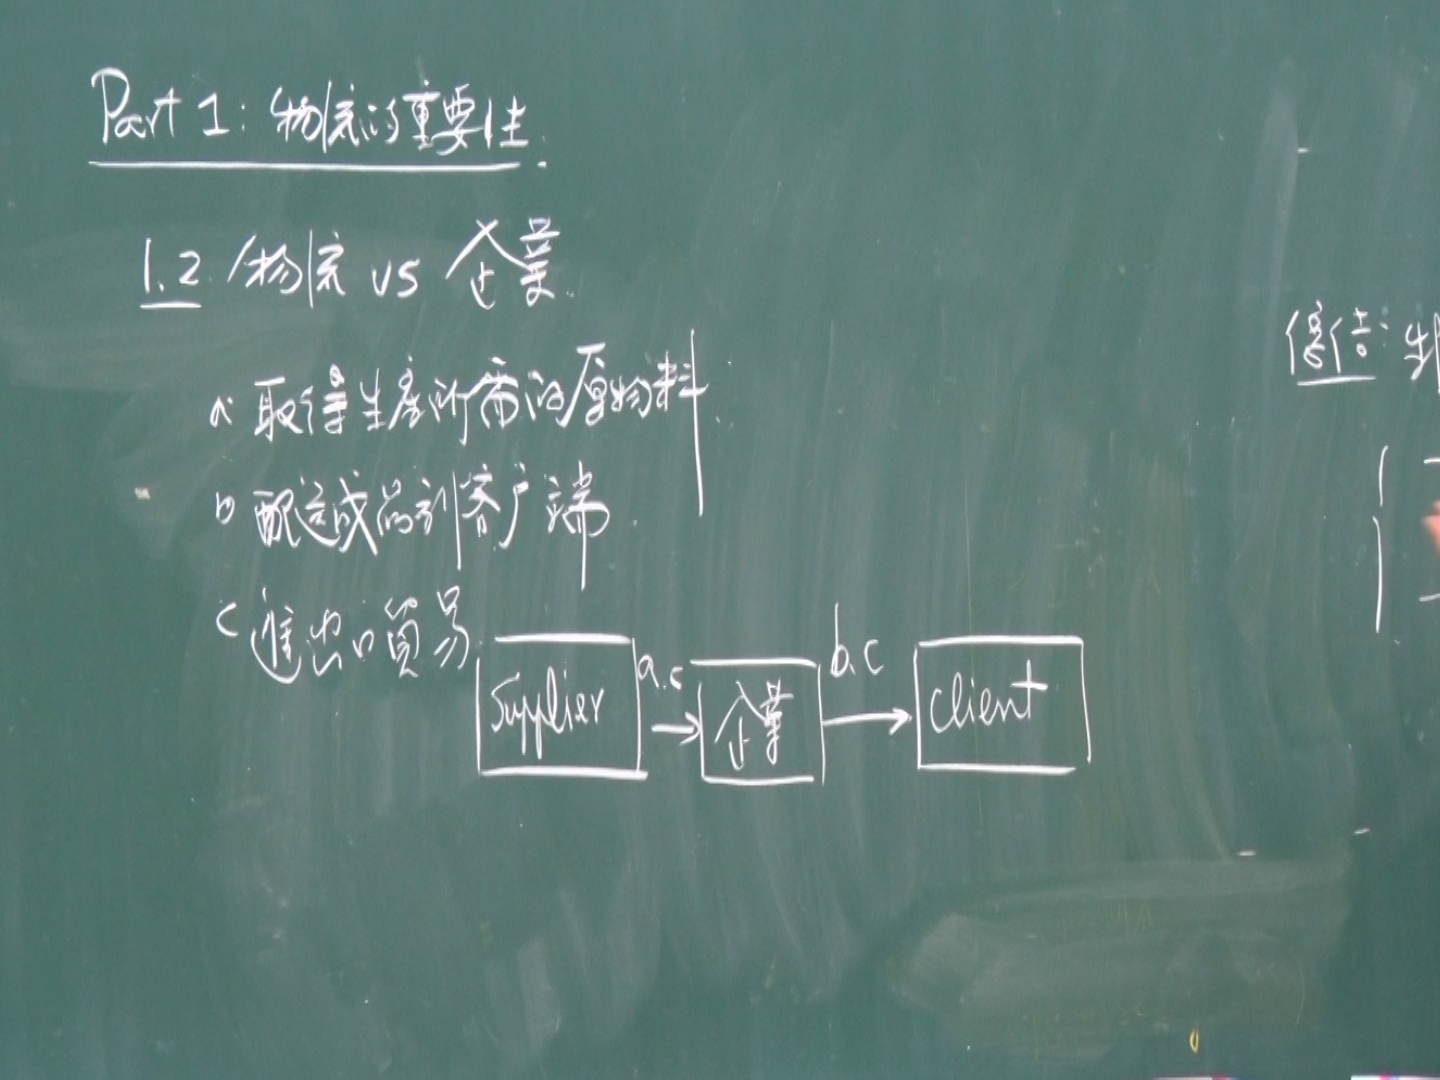 Part 1: 物流的重要性.
1.2 物流 vs 企業.
a. 取得生產所需的原物料.
b 配送成品到客戶端.
c 進出口貿易.
a.c
b.c
Supplier
企業
client